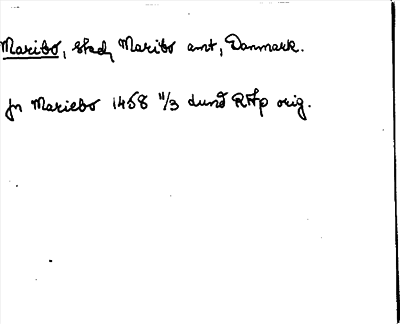 Maribo, stad, Maribo amt, Danmark.
jn Mariebo 1458 11/3 dund RAp orig.